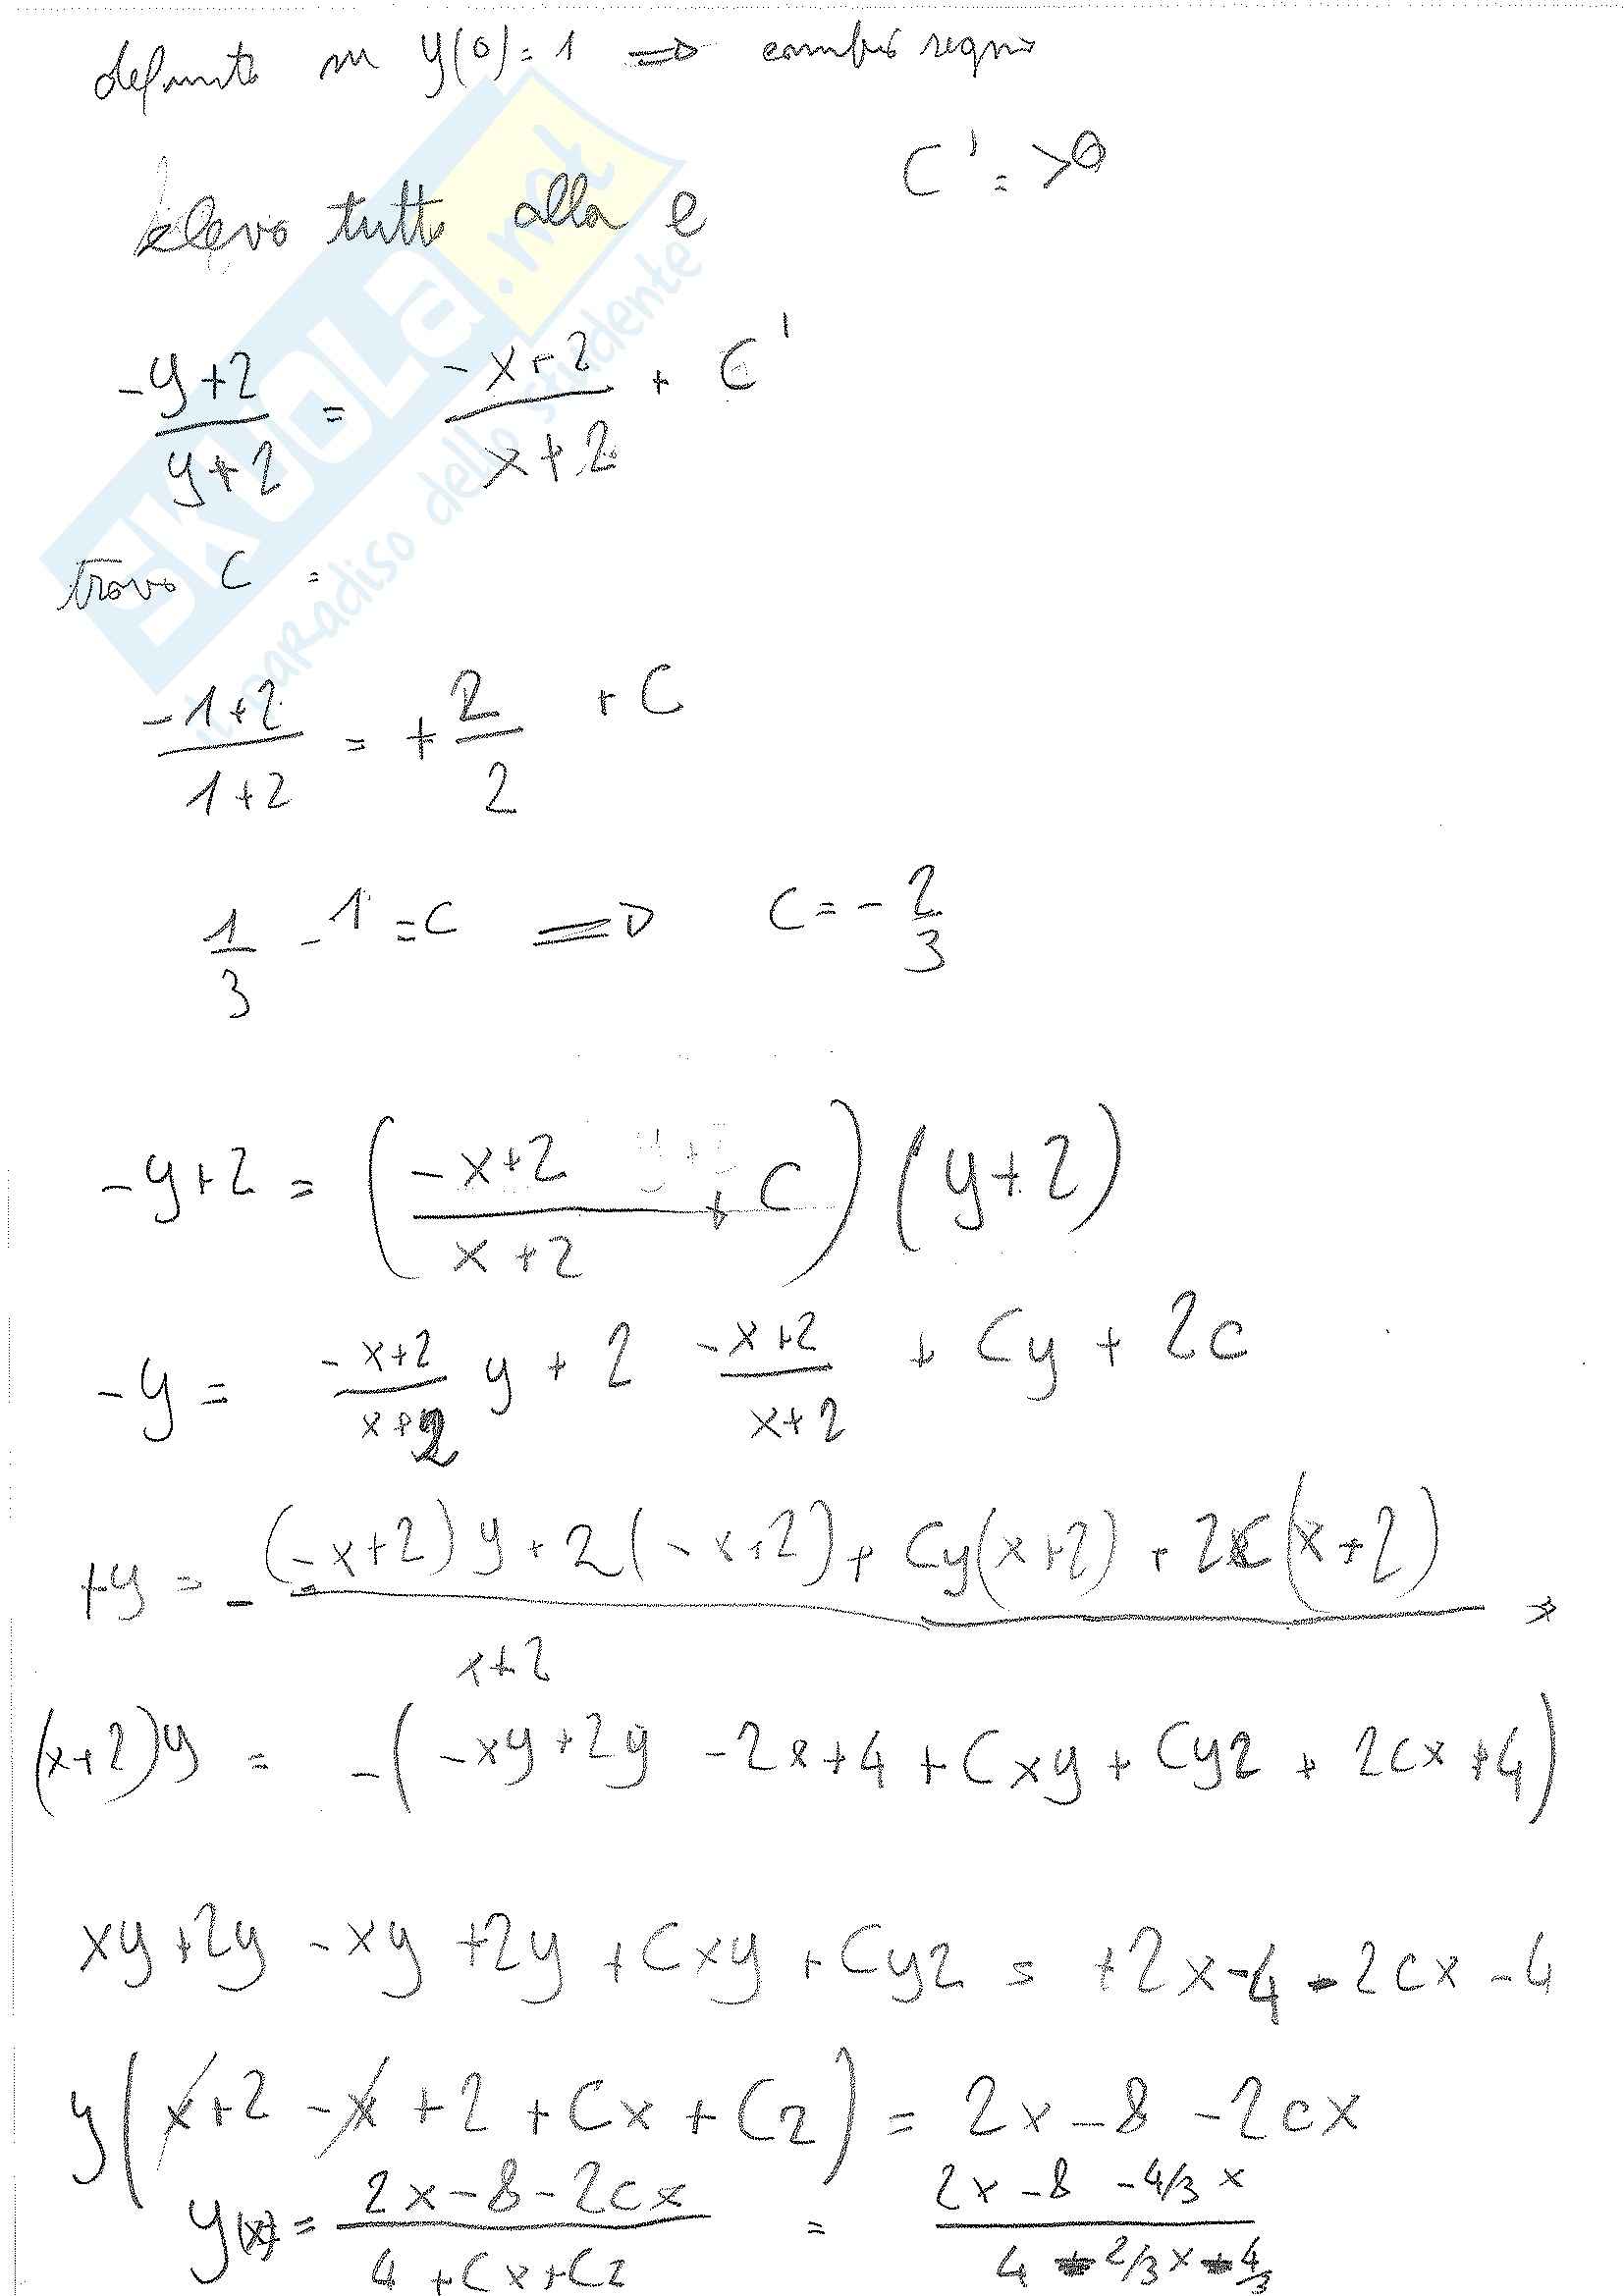 definito in y(0)=1 => cambio segno
C' = >0
elevo tutto alla e
(-y+2)/(y+2) = (-x+2)/(x+2) + C'
trovo C =
(-1+2)/(1+2) = +2/2 + C
1/3 -1 = C => C = -2/3
-y+2 = ((-x+2)/(x+2) + C)(y+2)
-y = (-x+2)/(x+2) y + 2 (-x+2)/(x+2) + Cy + 2C
+y = - ((-x+2)y + 2(-x+2) + Cy(x+2) + 2C(x+2))/(x+2)
(x+2)y = -(-xy+2y -2x+4 + Cxy + Cy2 + 2Cx +4)
xy+2y -xy +2y + Cxy + Cy2 = +2x-4 - 2Cx -4
y(x+2 -x +2 + Cx + C2) = 2x -8 -2Cx
y(x) = (2x-8-2Cx)/(4+Cx+C2) = (2x -8 -4/3 x)/(4 - 2/3 x - 4/3)
SKUOLA.net
il paradiso dello studente